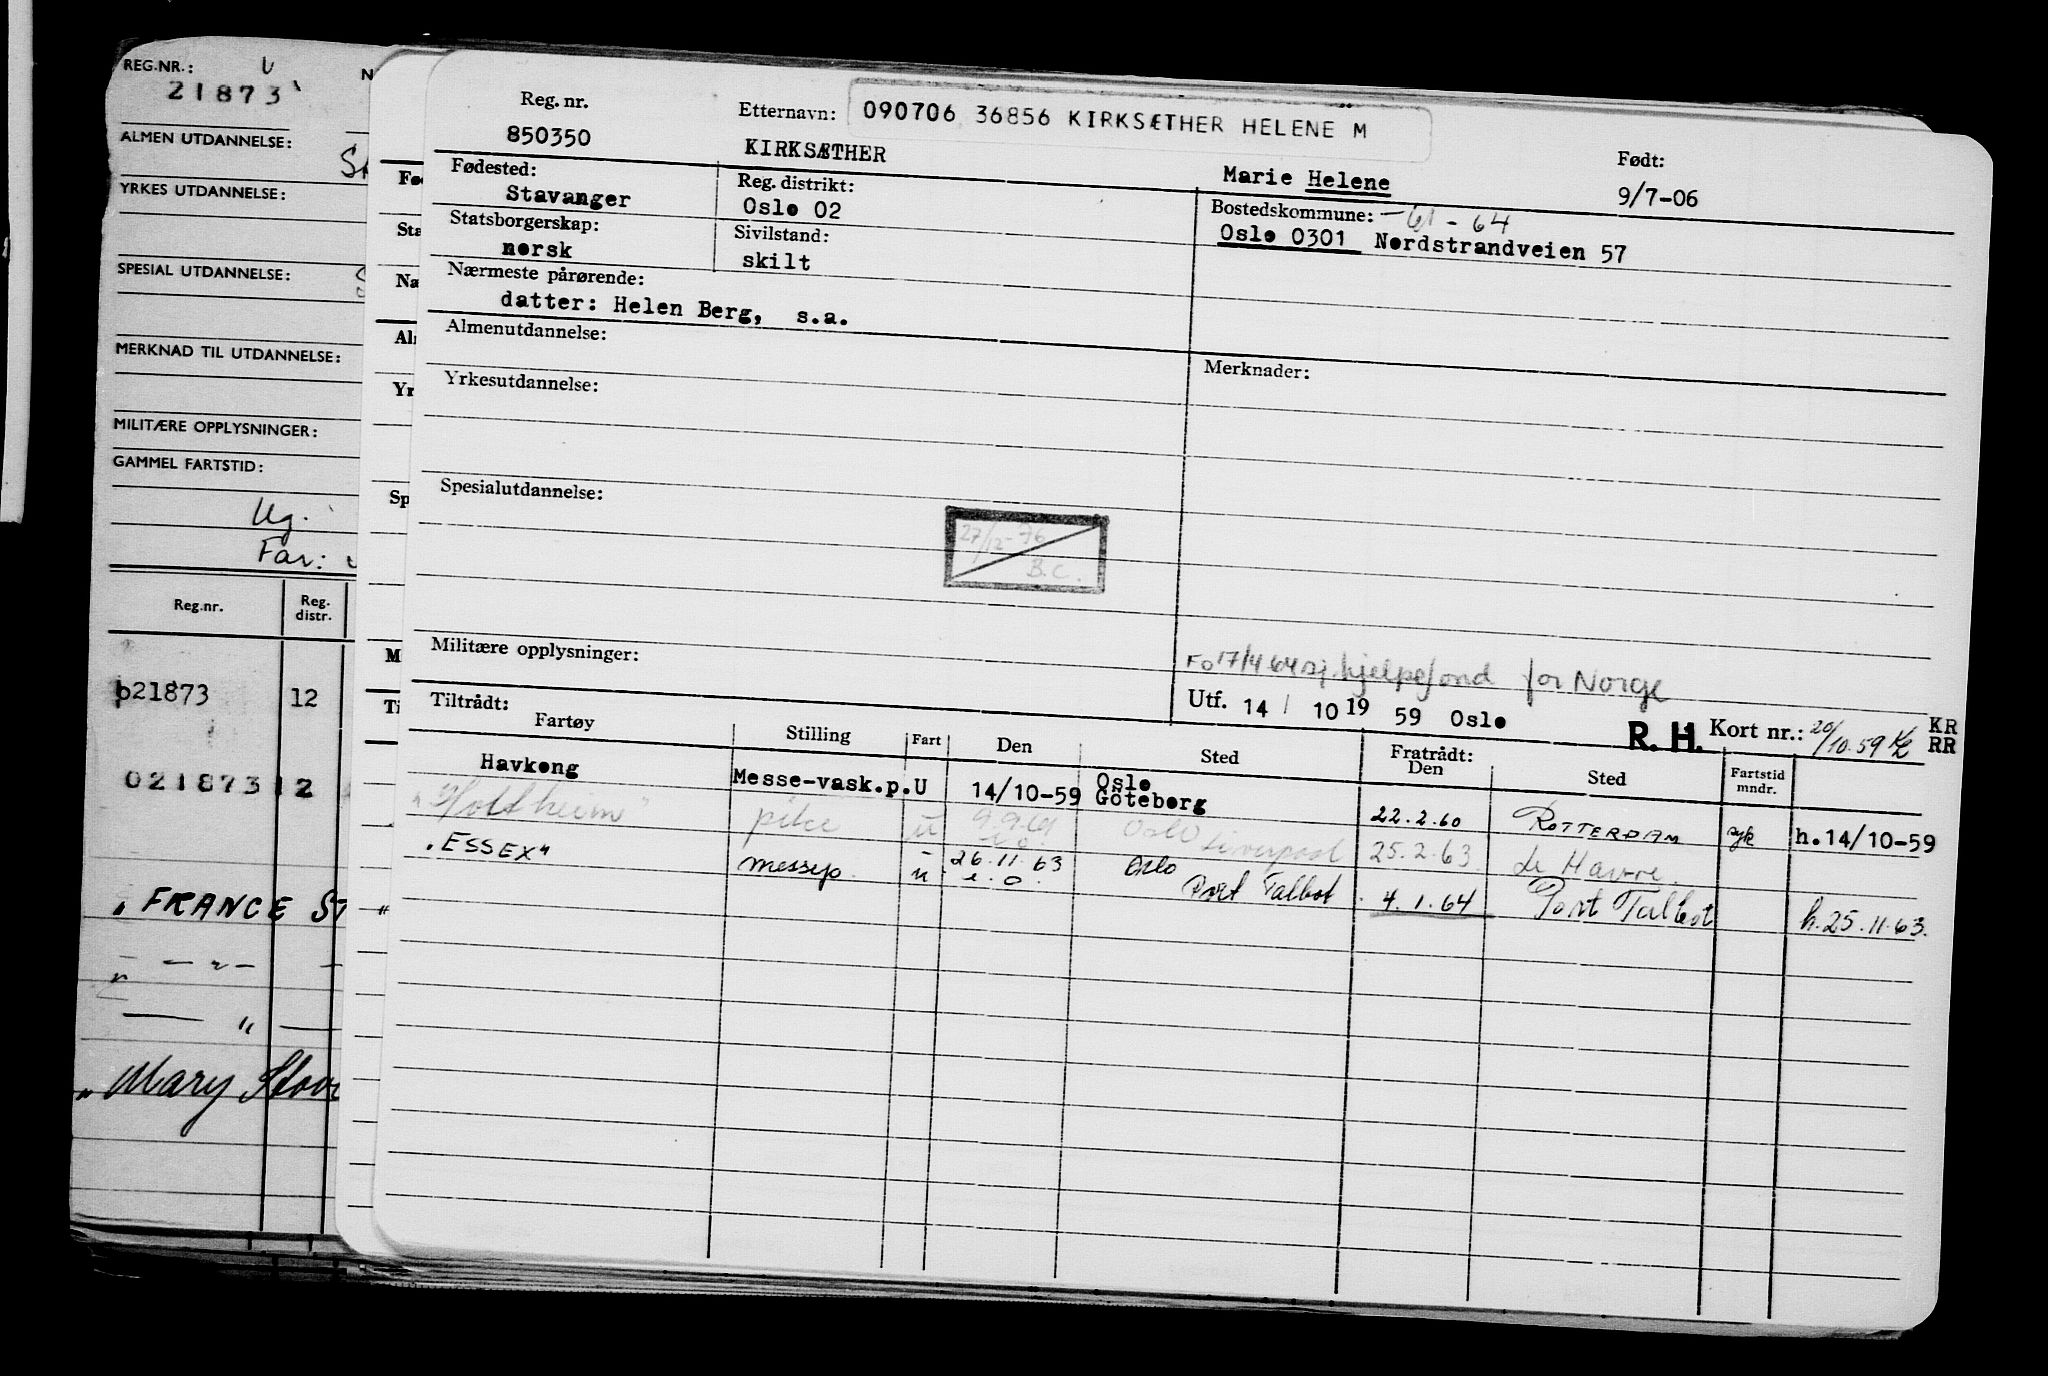 REG.NR.:
21873
ALMEN UTDANNELSE:
YRKES UTDANNELSE:
SPESIAL UTDANNELSE:
MERKNAD TIL UTDANNELSE:
MILITÆRE OPPLYSNINGER:
GAMMEL FARTSTID:
Ug.
Far:
Reg.nr. Reg. distr.
021873 12
021873 12
"FRANCE ST
"Mary Stov
Reg. nr.
850350
Etternavn: 090706 36856 KIRKSÆTHER HELENE M
KIRKSÆTHER
Marie Helene
Født:
9/7-06
Fødested:
Stavanger
Reg. distrikt:
Oslo 02
Bostedskommune: -61-64
Oslo 0301 Nordstrandveien 57
Statsborgerskap:
norsk
Sivilstand:
skilt
Nærmeste pårørende:
datter: Helen Berg, s.a.
Almenutdannelse:
Merknader:
Yrkesutdannelse:
Spesialutdannelse:
27/12-76
B.C.
Militære opplysninger:
Fo 17/4 64 sj. hjelpefond for Norge
Utf. 14/10 19 59 Oslo
R. H. Kort nr.: 20/10.59 KR RR
Tiltrådt:
Fartøy Stilling Fart Den Sted Fratrådt: Den Sted Fartstid mndr.
Havkong Messe-vask.p. U 14/10-59 Oslo Göteborg 22.2.60 ROTTERDAM syk h.14/10-59
pike u 9.9.61 Oslo Liverpool 25.2.63 Le Havre.
"ESSEX" messep. u 26.11.63 Oslo Port Talbot 4.1.64 Port Talbot h.25.11.63.